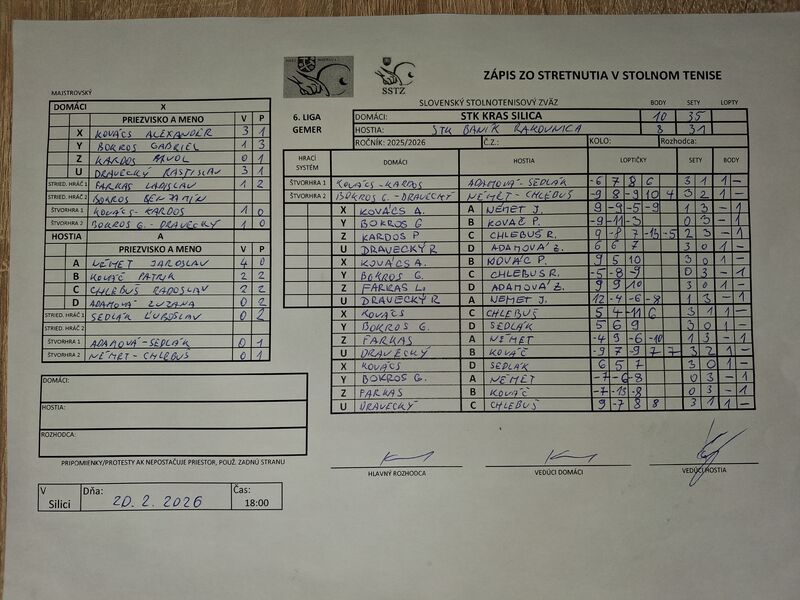 SSTZ
ZÁPIS ZO STRETNUTIA V STOLNOM TENISE
MAJSTROVSKÝ
DOMÁCI X
PRIEZVISKO A MENO V P
X KOVÁCS ALEXANDER 3 1
Y BOKROS GABRIEL 1 3
Z KARDOS PAVOL 0 1
U DRAVECKÝ RASTISLAV 3 1
STRIED. HRÁČ 1 FARKAS LADISLAV 1 2
STRIED. HRÁČ 2 BOKROS BENJAMÍN
ŠTVORHRA 1 KOVÁCS - KARDOS 1 0
ŠTVORHRA 2 BOKROS G. - DRAVECKÝ 1 0
HOSTIA A
PRIEZVISKO A MENO V P
A NÉMET JAROSLAV 4 0
B KOVÁČ PATRIK 2 2
C CHLEBUŠ RADOSLAV 2 2
D ADAMOVÁ ZUZANA 0 2
STRIED. HRÁČ 1 SEDLÁK ĽUBOSLAV 0 2
STRIED. HRÁČ 2
ŠTVORHRA 1 ADAMOVÁ - SEDLÁK 0 1
ŠTVORHRA 2 NÉMET - CHLEBUŠ 0 1
DOMÁCI:
HOSTIA:
ROZHODCA:
PRIPOMIENKY/PROTESTY AK NEPOSTAČUJE PRIESTOR, POUŽ. ZADNÚ STRANU
V Silici Dňa: 20.2.2026 Čas: 18:00
6. LIGA
GEMER
SLOVENSKÝ STOLNOTENISOVÝ ZVÄZ BODY SETY LOPTY
DOMÁCI: STK KRAS SILICA 10 35
HOSTIA: STK BANÍK RAKOVNICA 8 31
ROČNÍK: 2025/2026 Č.Z.: KOLO: Rozhodca:
HRACÍ SYSTÉM DOMÁCI HOSTIA LOPTIČKY SETY BODY
ŠTVORHRA 1 KOVÁCS - KARDOS ADAMOVÁ - SEDLÁK -6 7 8 6 3 1 1 -
ŠTVORHRA 2 BOKROS G. - DRAVECKÝ NÉMET - CHLEBUŠ -9 8 -9 10 4 3 2 1 -
X KOVÁCS A. A NÉMET J. 9 -9 -5 -9 1 3 - 1
Y BOKROS G B KOVÁČ P. -9 -11 -3 0 3 - 1
Z KARDOS P C CHLEBUŠ R. 9 -8 7 -13 -5 2 3 - 1
U DRAVECKÝ R D ADAMOVÁ Z. 6 6 7 3 0 1 -
X KOVÁCS A. B KOVÁČ P. 9 5 10 3 0 1 -
Y BOKROS G. C CHLEBUŠ R. -5 -8 -9 0 3 - 1
Z FARKAS L. D ADAMOVÁ Z. 9 9 10 3 0 1 -
U DRAVECKÝ R A NÉMET J. 12 -4 -6 -8 1 3 - 1
X KOVÁCS C CHLEBUŠ 5 4 -11 6 3 1 1 -
Y BOKROS G. D SEDLÁK 5 6 9 3 0 1 -
Z FARKAS A NÉMET -4 9 -6 -10 1 3 - 1
U DRAVECKÝ B KOVÁČ -9 7 -9 7 7 3 2 1 -
X KOVÁCS D SEDLÁK 6 5 7 3 0 1 -
Y BOKROS G. A NÉMET -7 -6 -8 0 3 - 1
Z FARKAS B KOVÁČ -7 -13 -8 0 3 - 1
U DRAVECKÝ C CHLEBUŠ 9 -7 8 8 3 1 1 -
HLAVNÝ ROZHODCA VEDÚCI DOMÁCI VEDÚCI HOSTIA